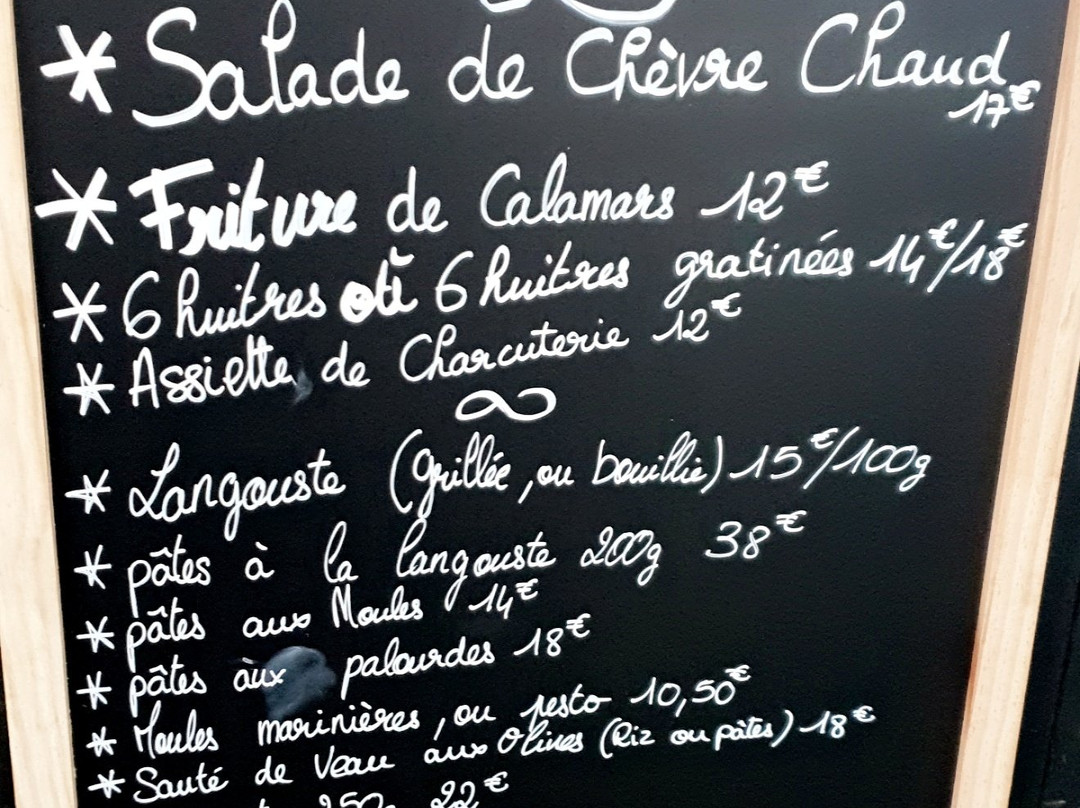 * Salade de Chèvre Chaud
17€
* Friture de Calamars 12€
* 6 huitres où 6 huitres gratinées 14€/18€
* Assiette de Charcuterie 12€
* Langouste (grillée, ou bouillie) 15€/100g
* pâtes à la langouste 200g 38€
* pâtes aux Moules 14€
* pâtes aux palourdes 18€
* Moules marinières, ou pesto 10,50€
* Sauté de Veau aux Olives (Riz ou pâtes) 18€
250g 22€